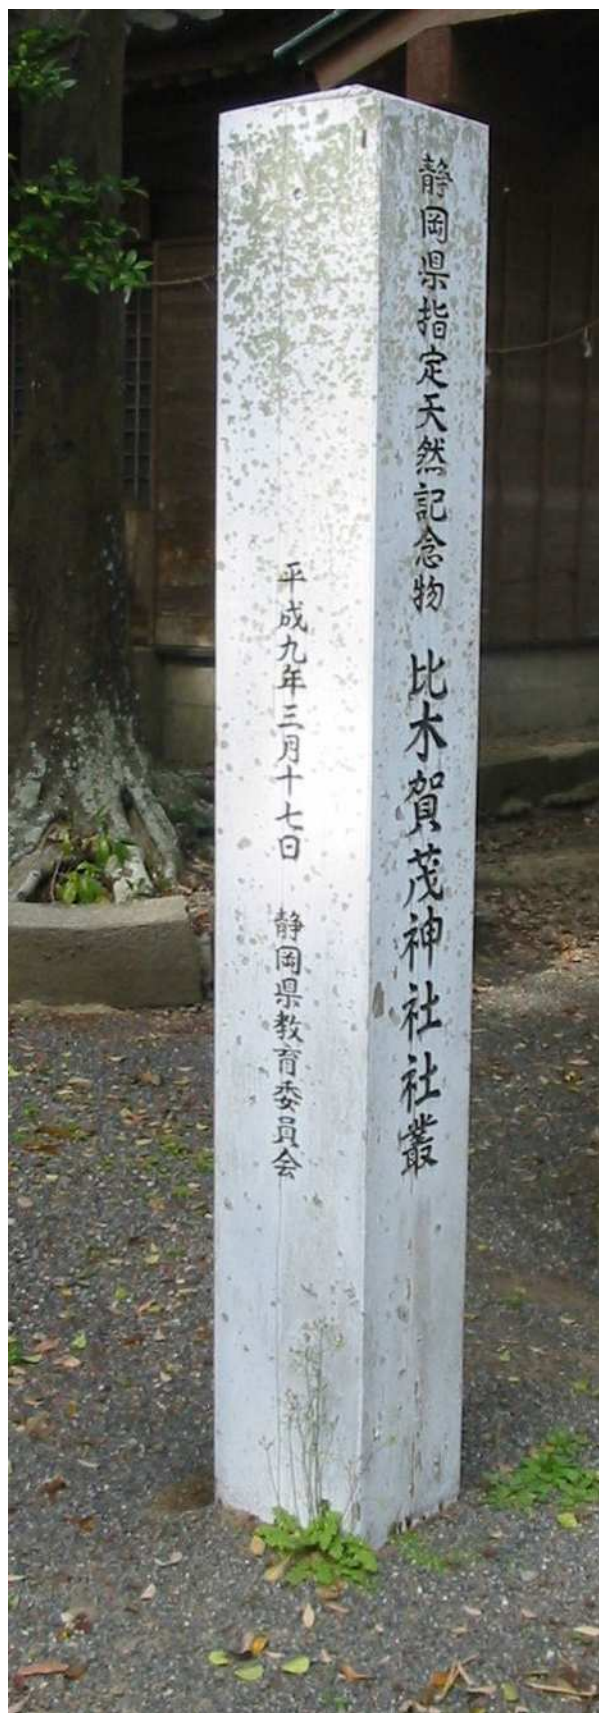 静岡県指定天然記念物 比木賀茂神社社叢
平成九年三月十七日 静岡県教育委員会